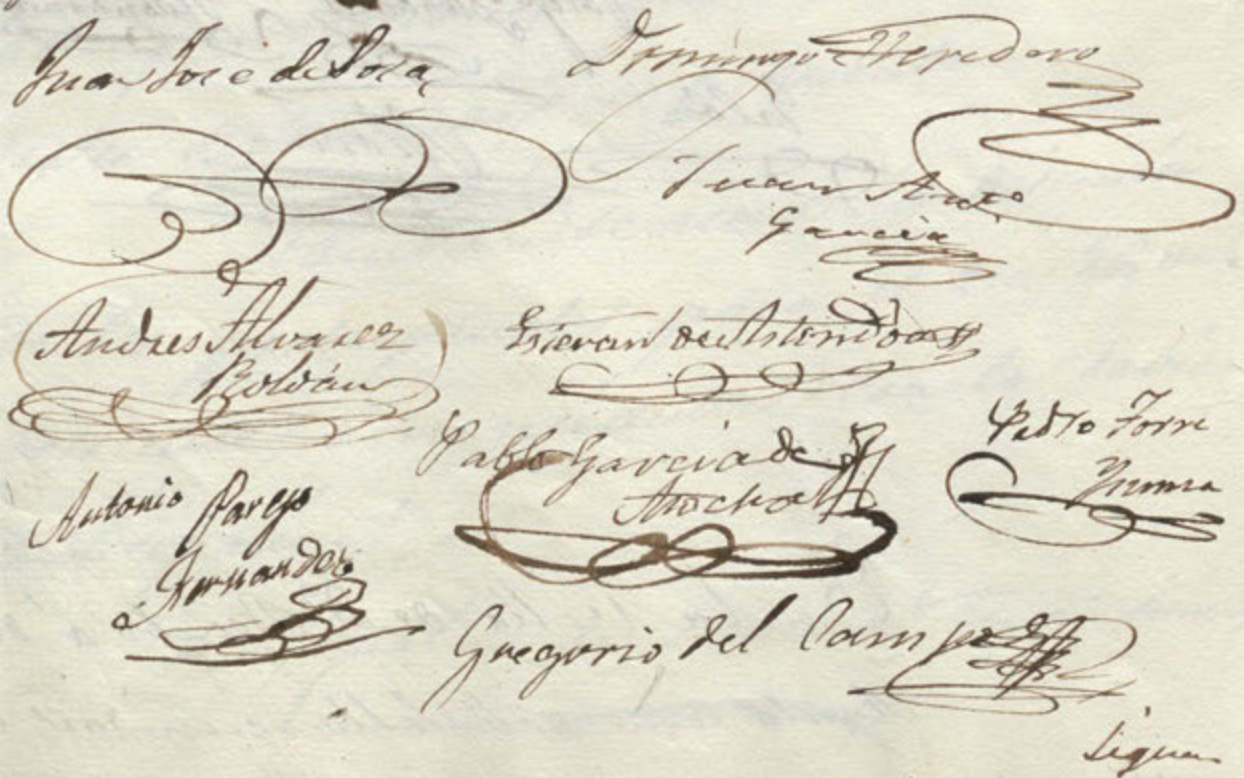 Juan Jose de Sosa
Domingo Heredero
Juan Anto
Garcia
Andres Alvarez
Roldán
Estevan de
Pablo Garcia de
Atocha
Pedro Torre
Antonio Parejo
Fernandez
Gregorio del Campo
Siguen